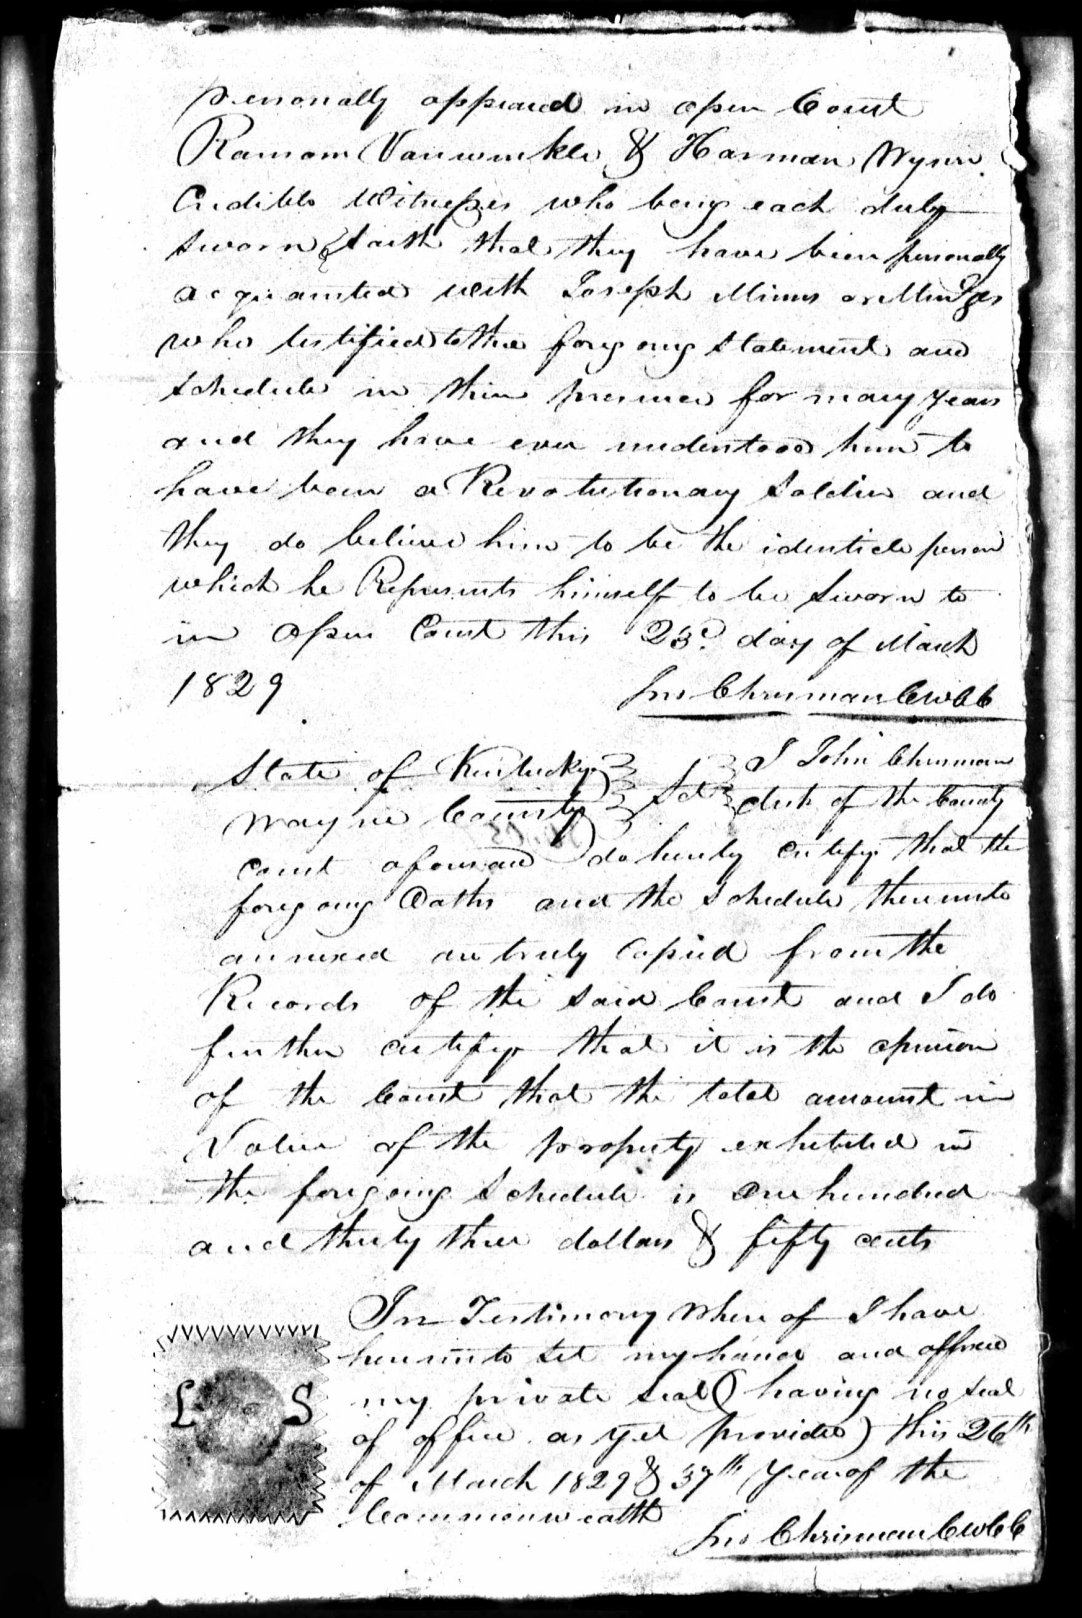 personally appeared in open Court
Ransom Vanwinkle & Harman Wynn
Credible Witnesses who being each duly
sworn saith that they have been personally
acquainted with Joseph Minus or
who testified to the foregoing statement and
schedule in their presence for many years
and they have ever understood him to
have been a Revolutionary Soldier and
they do believe him to be the identicle person
which he Represents himself to be Sworn to
in open Court this 23d. day of March
1829
Jno Chrisman CWCC
State of Kentucky
Wayne County
Sct
I John Chrisman
clerk of the County
court aforesaid do hereby certify that the
foregoing Oaths and the schedule thereunto
annexed are truly Copied from the
Records of the said Court and I do
further certify that it is the opinion
of the Court that the total amount in
Value of the property exhibited in
the foregoing Schedule is One hundred
and thirty three dollars & fifty cents
In Testimony Where of I have
hereunto set my hand and affixed
my private seal (having no seal
of office as yet provided) this 26th
of March 1829 & 37th Year of the
Commonwealth
L S
Jno Chrisman CWCC